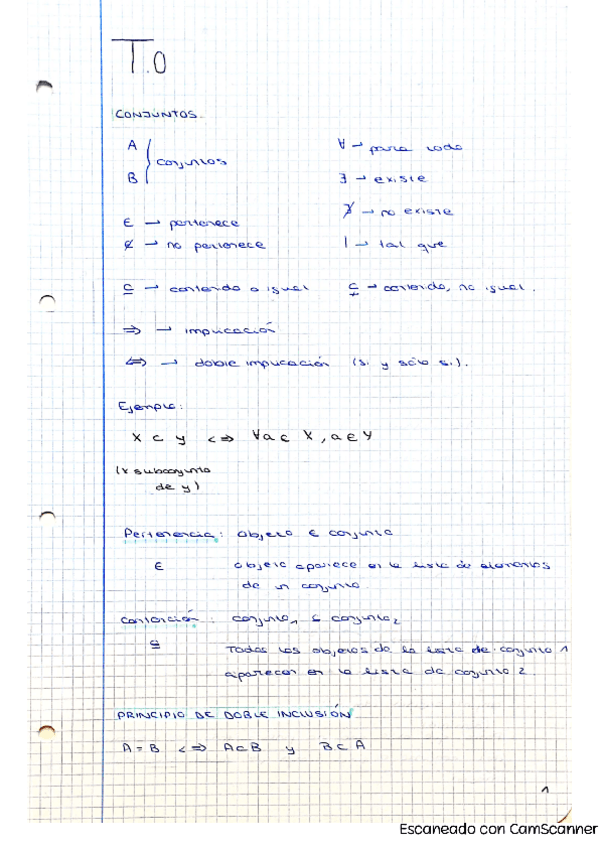 T.0
CONJUNTOS.
A
B
conjuntos
∀ → para todo
∃ → existe
∄ → no existe
∈ → pertenece
∉ → no pertenece
| → tal que
⊆ → contenido o igual
⊊ → contenido, no igual.
⇒ → implicación
⇔ → doble implicación (si y sólo si).
Ejemplo:
X ⊂ Y <=> ∀a ∈ X, a ∈ Y
(x subconjunto
de y)
Pertenencia: objeto ∈ conjunto
∈ objeto aparece en la lista de elementos
de un conjunto.
Contención: conjunto₁ ⊆ conjunto₂
⊆ Todos los objetos de la lista de conjunto 1
aparecen en la lista de conjunto 2.
PRINCIPIO DE DOBLE INCLUSIÓN
A = B <=> A⊂B y B⊂A
1
Escaneado con CamScanner